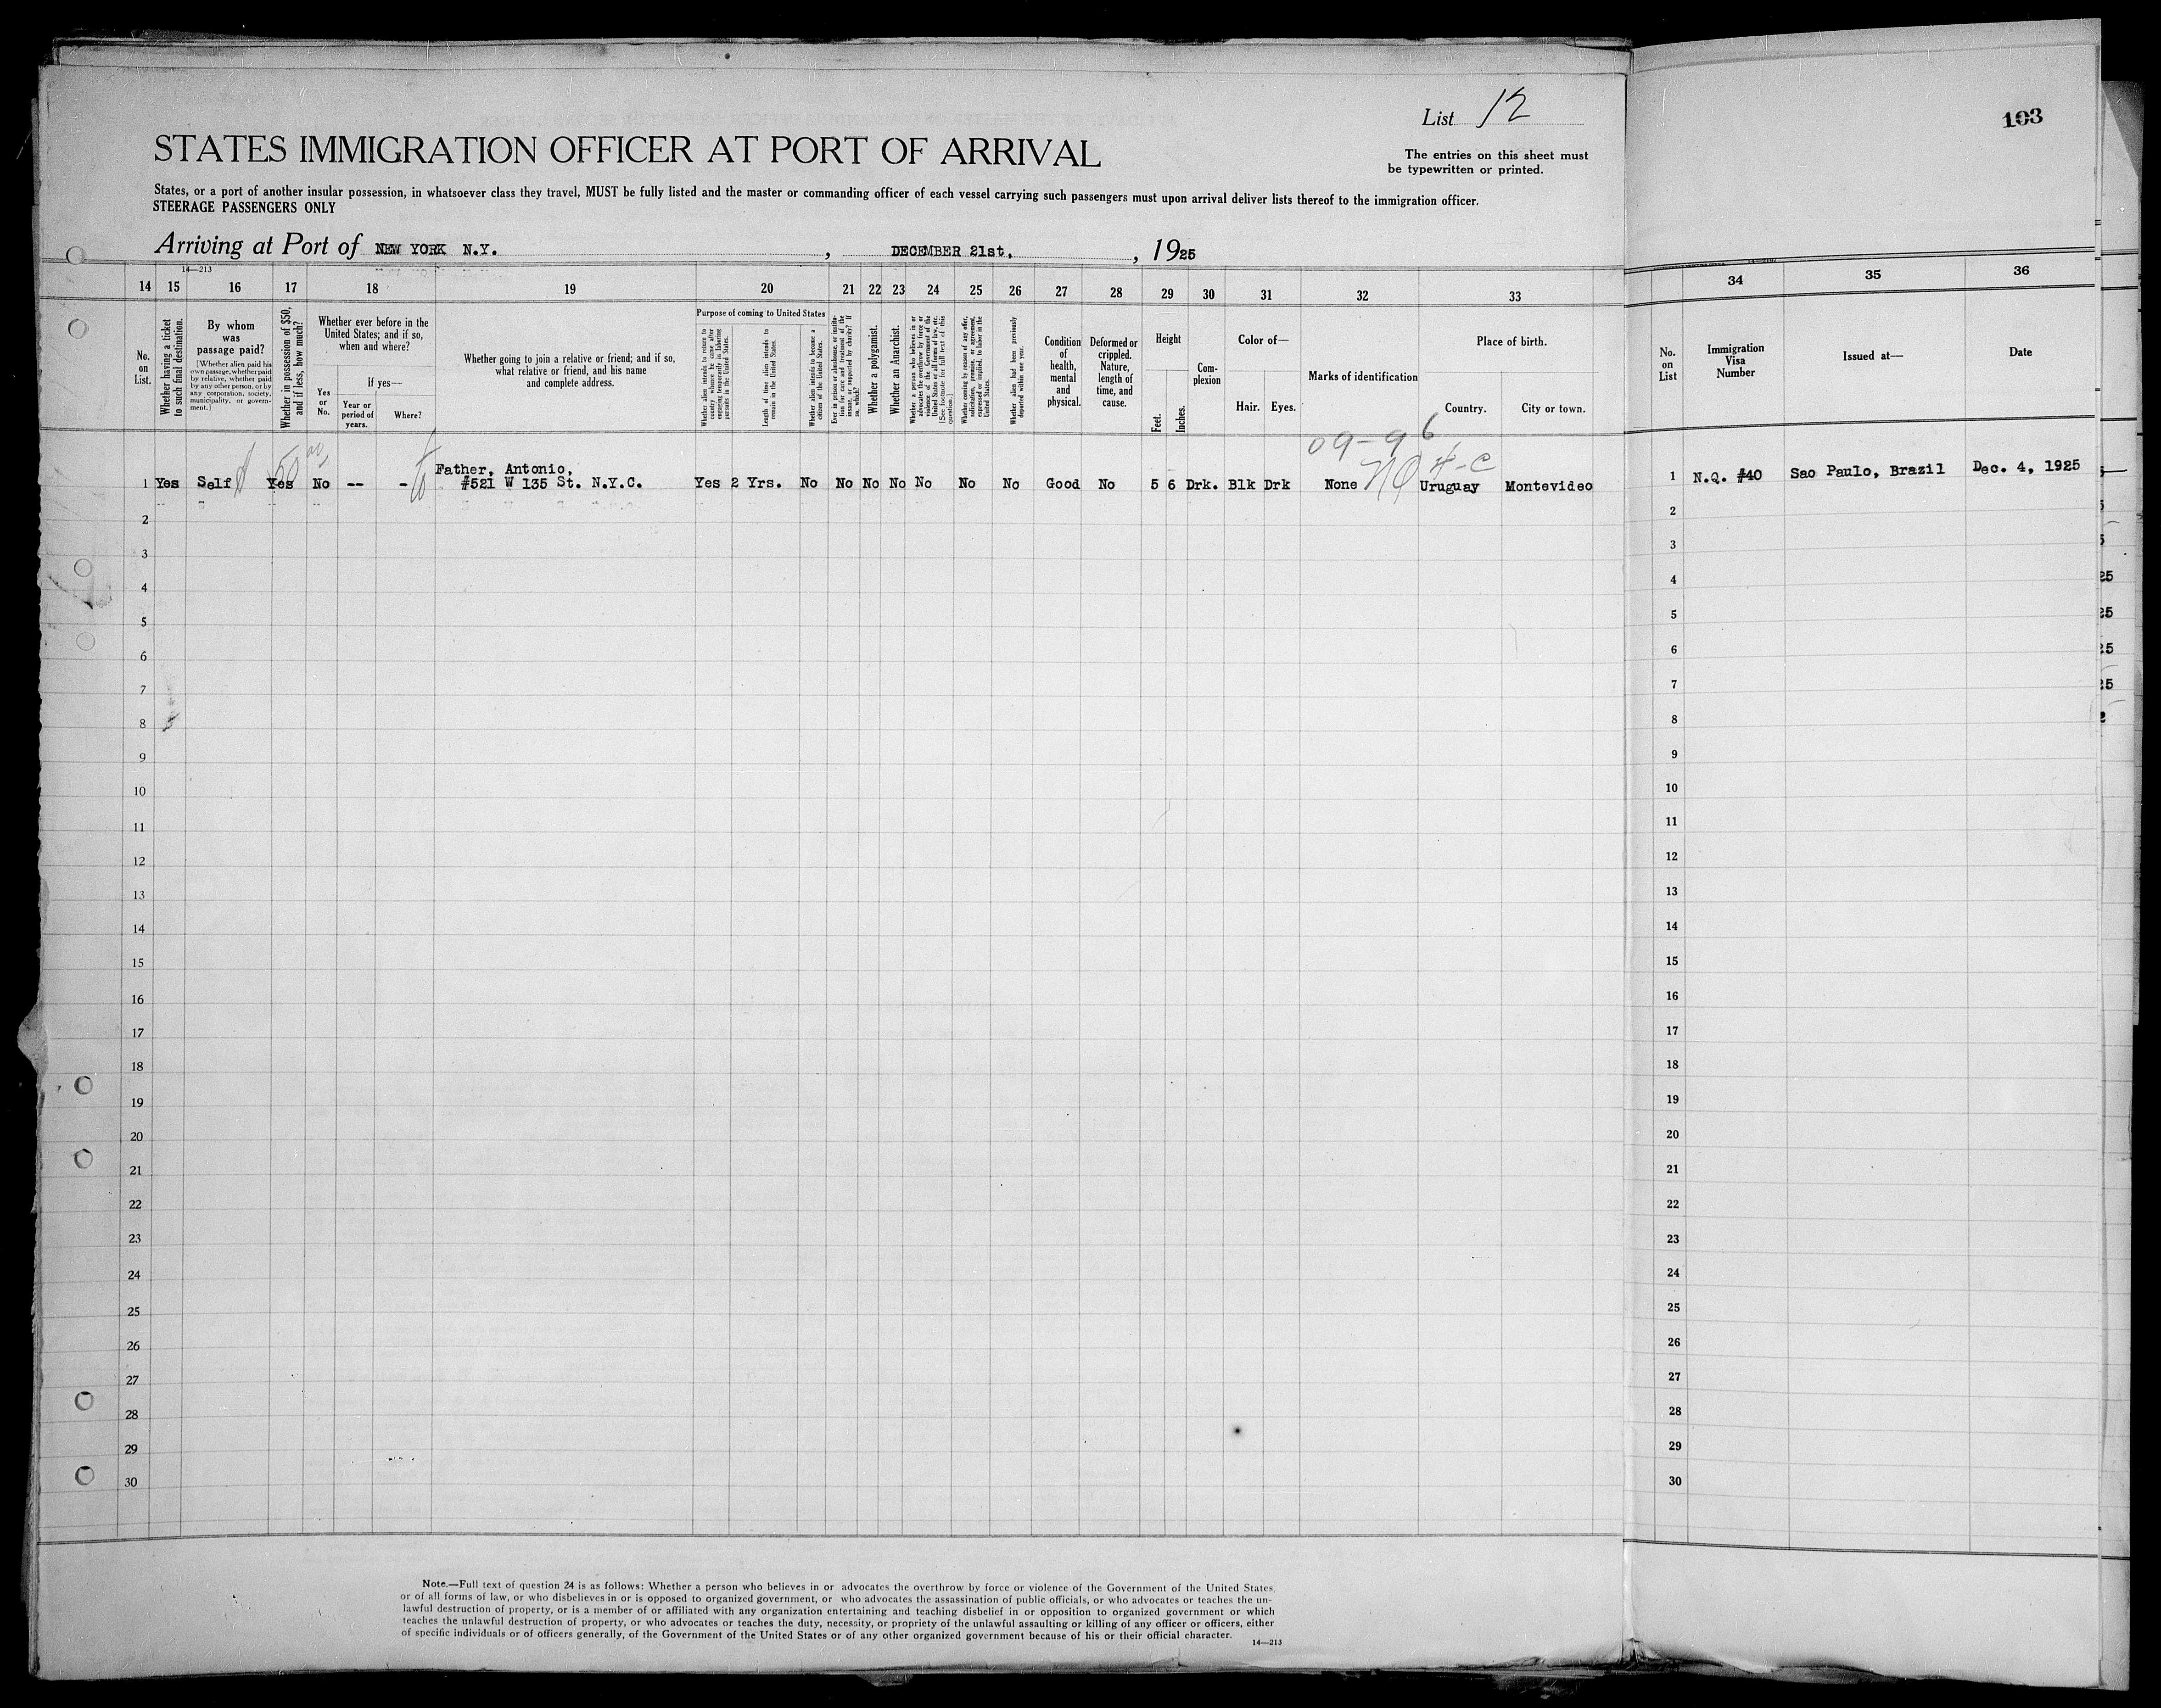 List 12
103
STATES IMMIGRATION OFFICER AT PORT OF ARRIVAL
The entries on this sheet must
be typewritten or printed.
States, or a port of another insular possession, in whatsoever class they travel, MUST be fully listed and the master or commanding officer of each vessel carrying such passengers must upon arrival deliver lists thereof to the immigration officer.
STEERAGE PASSENGERS ONLY
Arriving at Port of NEW YORK N.Y. , DECEMBER 21st, , 1925
14—213
14 15 16 17 18 19 20 21 22 23 24 25 26 27 28 29 30 31 32 33 34 35 36
No. on List.
Whether having a ticket to such final destination.
By whom was passage paid?
[Whether alien paid his own passage, whether paid by relative, whether paid by any other person, or by any corporation, society, municipality, or government.]
Whether in possession of $50, and if less, how much?
Whether ever before in the United States; and if so, when and where?
Yes or No.
If yes—
Year or period of years.
Where?
Whether going to join a relative or friend; and if so, what relative or friend, and his name and complete address.
Purpose of coming to United States
Whether alien intends to return to country whence he came after engaging temporarily in laboring pursuits in the United States.
Length of time alien intends to remain in the United States.
Whether alien intends to become a citizen of the United States.
Ever in prison or almshouse, or institution for care and treatment of the insane, or supported by charity? If so, which?
Whether a polygamist.
Whether an Anarchist.
Whether a person who believes in or advocates the overthrow by force or violence of the Government of the United States or all forms of law, etc. [See footnote for full text of this question.]
Whether coming by reason of any offer, solicitation, promise, or agreement, expressed or implied, to labor in the United States.
Whether alien had been previously deported within one year.
Condition of health, mental and physical.
Deformed or crippled. Nature, length of time, and cause.
Height
Feet.
Inches.
Complexion
Color of—
Hair. Eyes.
Marks of identification
Place of birth.
Country. City or town.
No. on List
Immigration Visa Number
Issued at—
Date
09-96
50
NQ 4-C
Father, Antonio,
1 Yes Self Yes No -- - #521 W 135 St. N.Y.C. Yes 2 Yrs. No No No No No No No Good No 5 6 Drk. Blk Drk None Uruguay Montevideo
1 N.Q. #40 Sao Paulo, Brazil Dec. 4, 1925
2 2
3 3
4 4
25
5 5
25
6 6
25
7 7
25
8 8
9 9
10 10
11 11
12 12
13 13
14 14
15 15
16 16
17 17
18 18
19 19
20 20
21 21
22 22
23 23
24 24
25 25
26 26
27 27
28 28
29 29
30 30
Note.—Full text of question 24 is as follows: Whether a person who believes in or advocates the overthrow by force or violence of the Government of the United States
or of all forms of law, or who disbelieves in or is opposed to organized government, or who advocates the assassination of public officials, or who advocates or teaches the un-
lawful destruction of property, or is a member of or affiliated with any organization entertaining and teaching disbelief in or opposition to organized government or which
teaches the unlawful destruction of property, or who advocates or teaches the duty, necessity, or propriety of the unlawful assaulting or killing of any officer or officers, either
of specific individuals or of officers generally, of the Government of the United States or of any other organized government because of his or their official character.
14—213